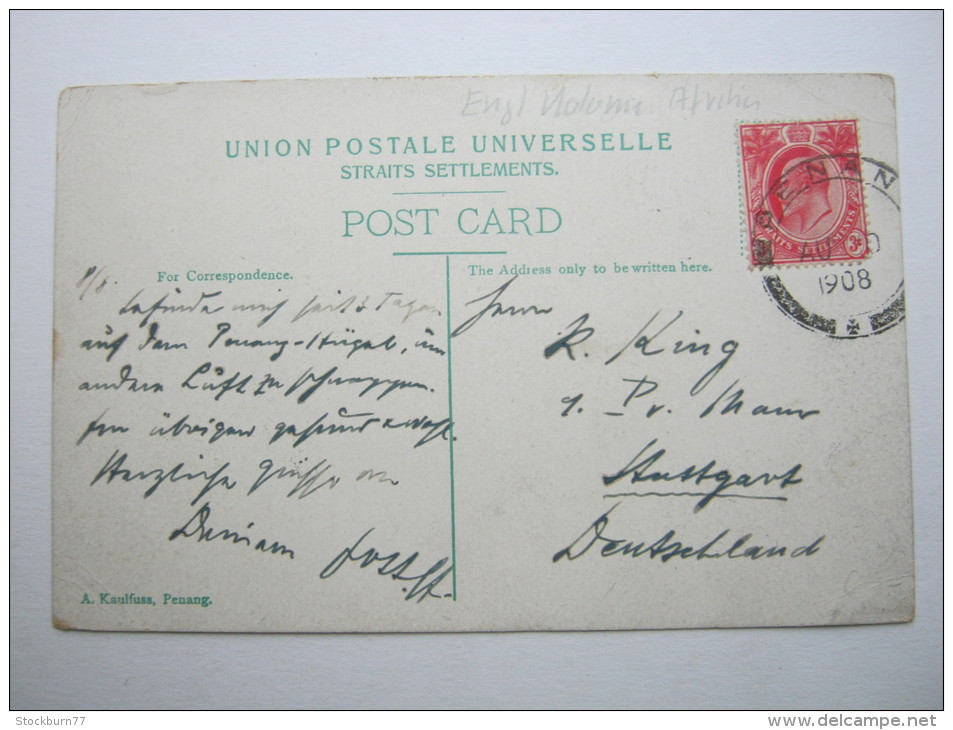 Engl
UNION POSTALE UNIVERSELLE
STRAITS SETTLEMENTS.
POST CARD
PENAN
AU
1908
STRAITS SETTLEMENTS
3c
For Correspondence.
The Address only to be written here.
befinde mich seit 2 Tagen
auf dem Penang-Hügel, um
andere Luft zu schnappen.
Im übrigen gesund & wohl.
Herzliche Grüsse an
Herrn
R. King
Stuttgart
Deutschland
A. Kaulfuss, Penang.
Stockburn77
www.delcampe.net